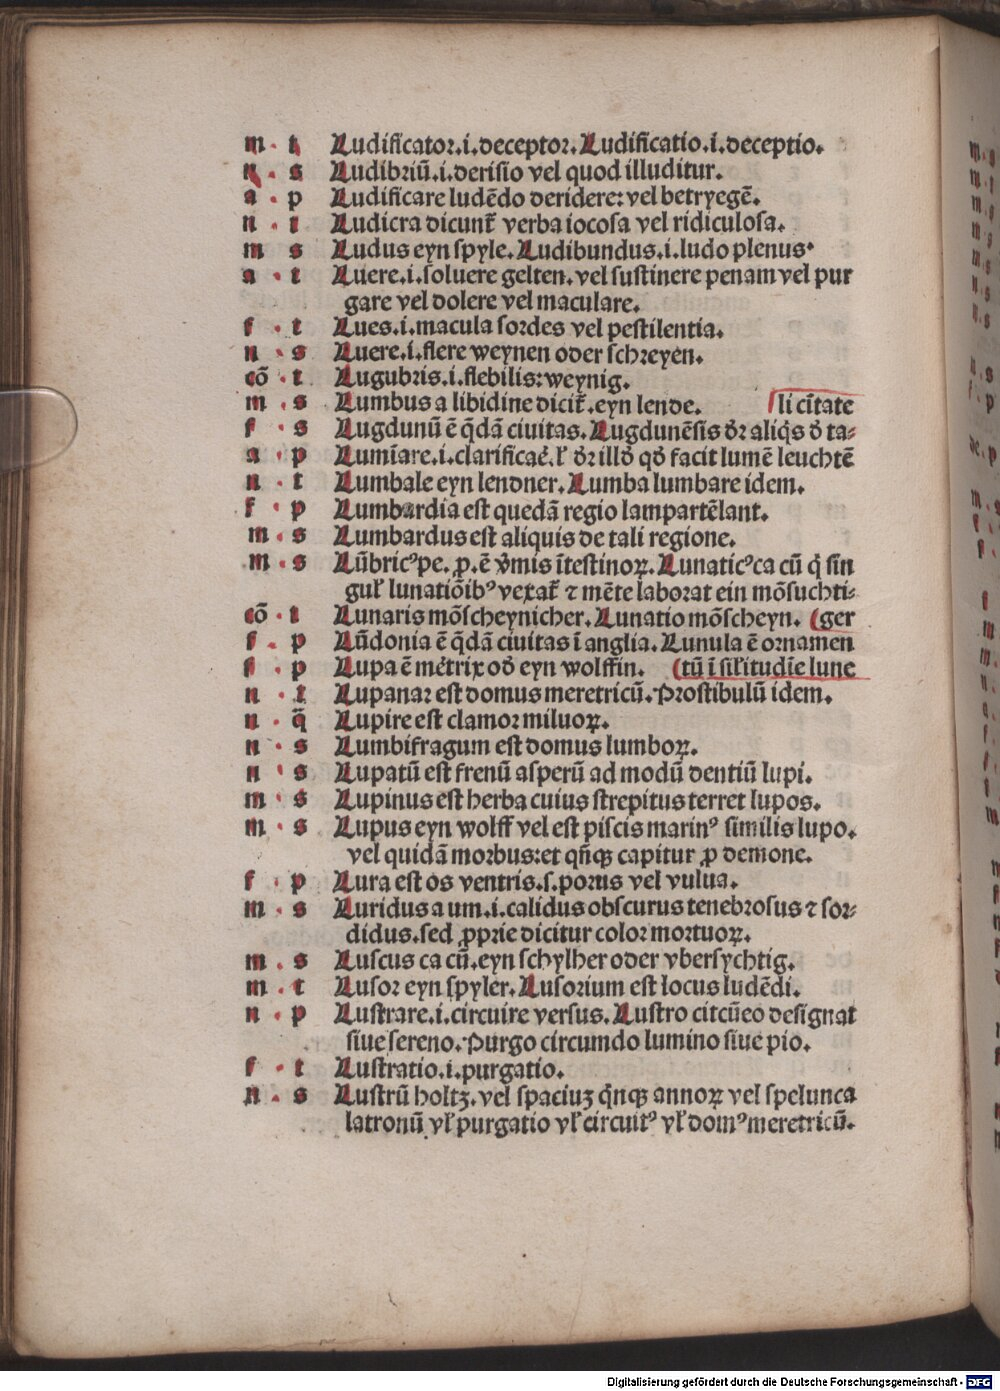 m · t Ludificator.i.deceptor. Ludificatio.i.deceptio.
n · s Ludibriū.i.derisio vel quod illuditur.
a · p Ludificare ludēdo deridere: vel betryegē.
n · t Ludicra dicunt̄ verba iocosa vel ridiculosa.
m s Ludus eyn spyle. Ludibundus.i.ludo plenus.
a · t Luere.i.soluere gelten.vel sustinere penam vel pur
gare vel dolere vel maculare.
f · t Lues.i.macula sordes vel pestilentia.
n · s Luere.i.flere weynen oder schreyen.
cō · t Lugubris.i.flebilis: weynig.
m · s Lumbus a libidine dicit̄.eyn lende. li cītate
f · s Lugdunū ē q̄dā ciuitas. Lugdunēsis d̄r aliq̇s d̄ ta⸗
a · p Lumīare.i.clarificaē.ł d̄r illd̄ qd̄ facit lumē leuchtē
n · t Lumbale eyn lendner. Lumba lumbare idem.
f · p Lumbardia est quedā regio lampartēlant.
m · s Lumbardus est aliquis de tali regione.
m · s Lūbricꝰ pe. ꝓ. ē v̄mis ītestinoꝝ. Lunaticꝰ ca cū q̇ sin
guł lunatiōibꝰ vexat̄ ⁊ mēte laborat ein mōsuchti⸗
cō · t Lunaris mōscheynicher. Lunatio mōscheyn. (ger
f · p Lūdonia ē q̄dā ciuitas ī anglia. Lunula ē ornamen
f · p Lupa ē mētrix od̄ eyn wolffin. (tū ī siłitudīe lune
n · t Lupanar est domus meretricū. Prostibulū idem.
n · q̄ Lupire est clamor miluoꝝ.
n · s Lumbifragum est domus lumboꝝ.
n · s Lupatū est frenū asperū ad modū dentiū lupi.
m · s Lupinus est herba cuius strepitus terret lupos.
m · s Lupus eyn wolff vel est piscis marinꝰ similis lupo.
vel quidā morbus: et qn̄qꝫ capitur ꝓ demone.
f · p Lura est os ventris.s.porus vel vulua.
m · s Luridus a um.i.calidus obscurus tenebrosus ⁊ sor⸗
didus.sed ꝓprie dicitur color mortuoꝝ.
m · s Luscus ca cū.eyn schylher oder vbersychtig.
m · t Lusor eyn spyler. Lusorium est locus ludēdi.
n · p Lustrare.i.circuire versus. Lustro citcūeo designat
siue sereno. Purgo circumdo lumino siue pio.
f · t Lustratio.i.purgatio.
n · s Lustrū holtz.vel spaciuꝫ q̇nqꝫ annoꝝ vel spelunca
latronū vł purgatio vł circuitꝰ vł domꝰ meretricū.
Digitalisierung gefördert durch die Deutsche Forschungsgemeinschaft - DFG